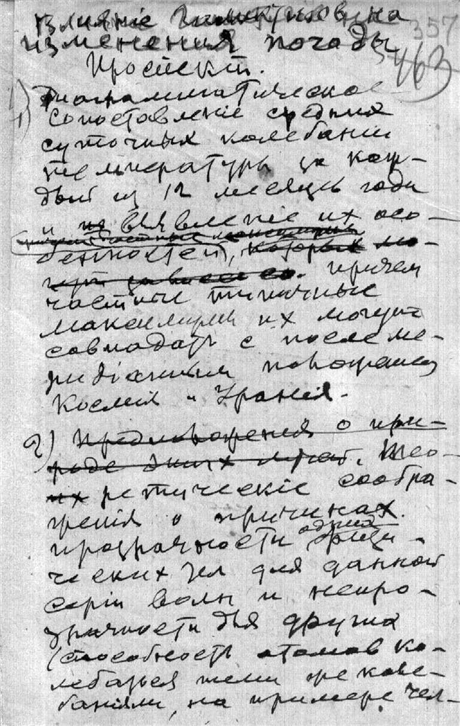 Вліяніе
измененія погоды
357
463
Проспект.
1) Диаграмматическое
сопоставленіе средних
суточных колебаніи
температуры за каж-
дый из 12 месяцев года
и выявленіе их осо-
бенностей, которых мо-
причем
частные типичные
максимумы их могут
совпадать с послеме-
ридіанными
и Уранія.
2) Предположения о при-
роде этих лучей. Тео-
ретическіе сообра-
женія о причинах
прозрачности одних физи-
ческих тел для данной
серіи волн и непро-
зрачности для других
(способность атомов ко-
лебаться теми же коле-
баніями, на примере чел-